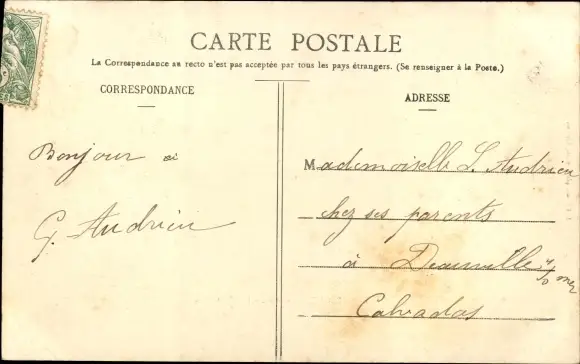 CARTE POSTALE
La Correspondance au recto n'est pas acceptée par tous les pays étrangers. (Se renseigner à la Poste.)
CORRESPONDANCE
Bonjour à
G. Audrieu
ADRESSE
Mademoiselle L. Audrieu
chez ses parents
à Deauville s/ mer
Calvados